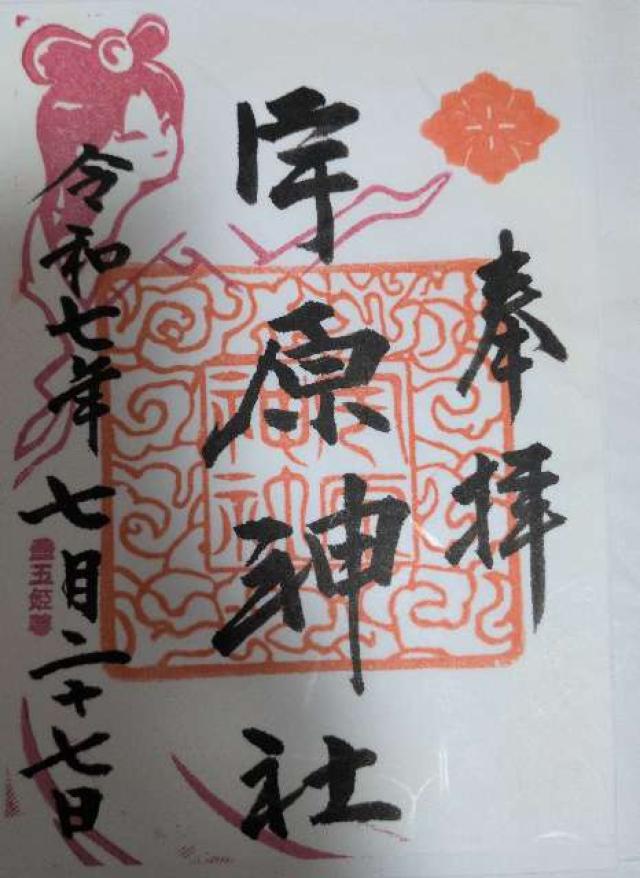 奉拝
宇原神社
令和七年七月二十七日
豊玉姫尊